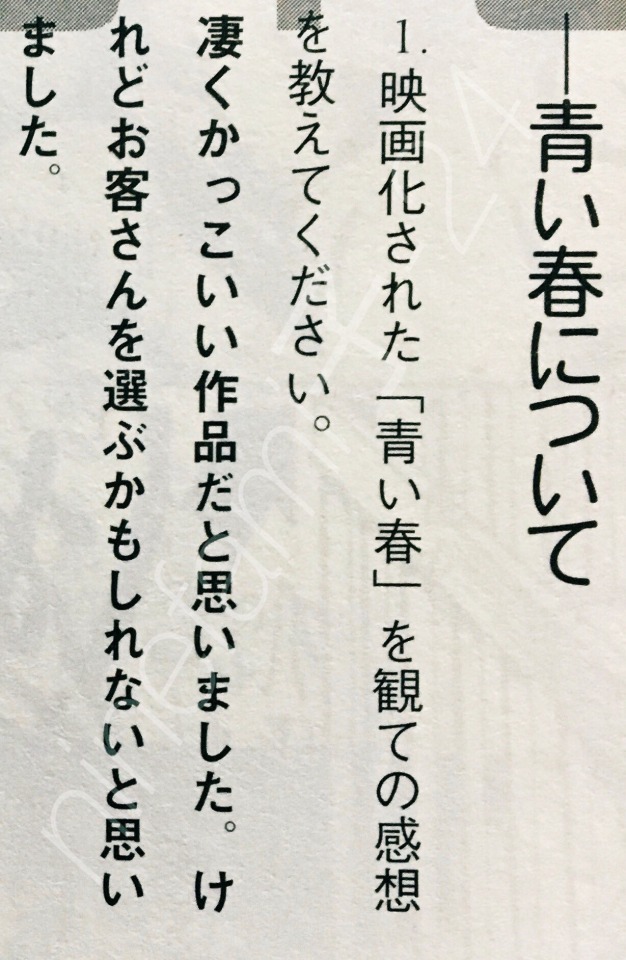 —青い春について
1. 映画化された「青い春」を観ての感想
を教えてください。
凄くかっこいい作品だと思いました。け
れどお客さんを選ぶかもしれないと思い
ました。